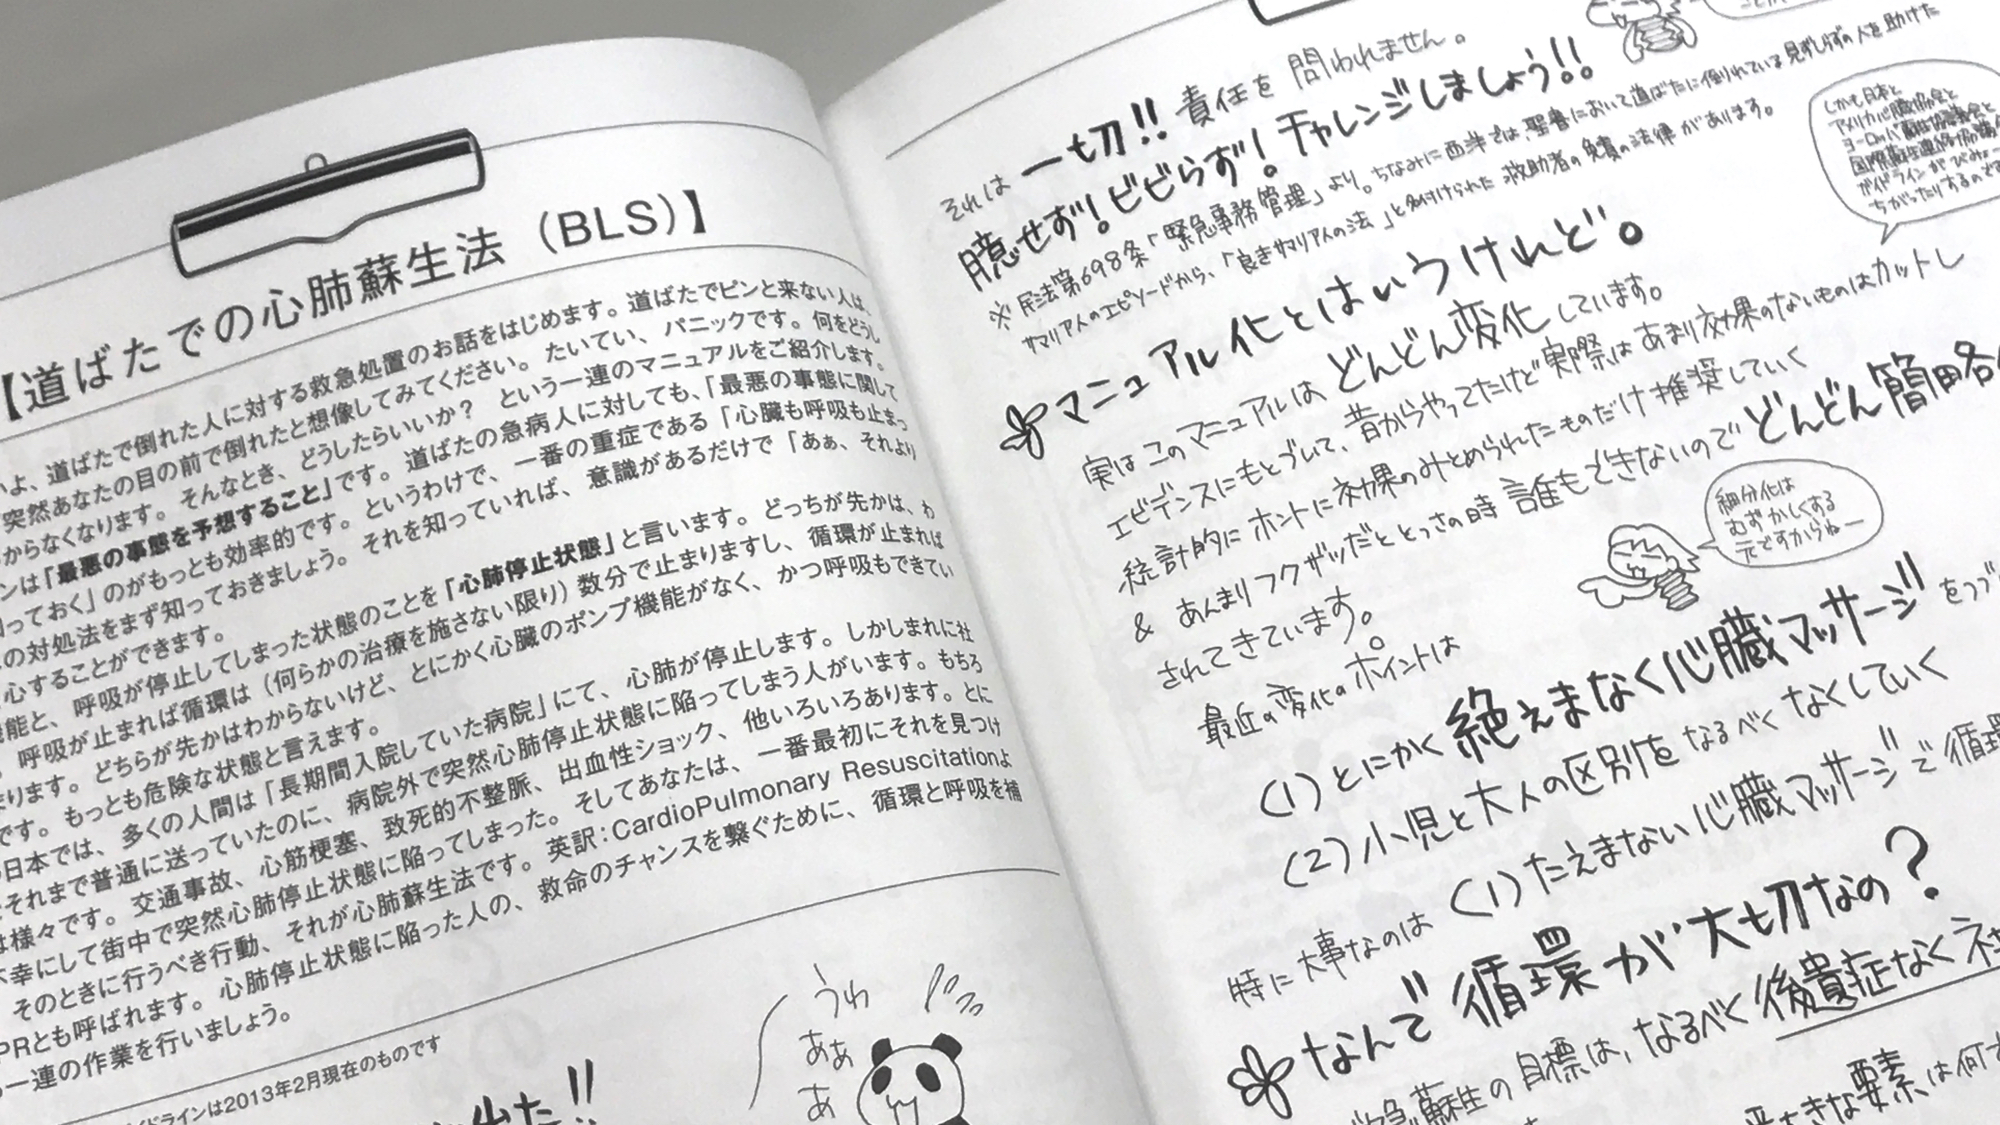 【道ばたでの心肺蘇生法（BLS）】
よ、道ばたで倒れた人に対する救急処置のお話をはじめます。道ばたでピンと来ない人は、
突然あなたの目の前で倒れたと想像してみてください。たいてい、パニックです。何をどうし
からなくなります。そんなとき、どうしたらいいか？　という一連のマニュアルをご紹介します。
ンは「最悪の事態を予想すること」です。道ばたの急病人に対しても、「最悪の事態に関して
っておく」のがもっとも効率的です。というわけで、一番の重症である「心臓も呼吸も止まっ
の対処法をまず知っておきましょう。それを知っていれば、意識があるだけで「あぁ、それより
心することができます。
能と、呼吸が停止してしまった状態のことを「心肺停止状態」と言います。どっちが先かは、わ
、呼吸が止まれば循環は（何らかの治療を施さない限り）数分で止まりますし、循環が止まれば
まります。どちらが先かはわからないけど、とにかく心臓のポンプ機能がなく、かつ呼吸もできてい
です。もっとも危険な状態と言えます。
日本では、多くの人間は「長期間入院していた病院」にて、心肺が停止します。しかしまれに社
それまで普通に送っていたのに、病院外で突然心肺停止状態に陥ってしまう人がいます。もちろ
は様々です。交通事故、心筋梗塞、致死的不整脈、出血性ショック、他いろいろあります。とに
不幸にして街中で突然心肺停止状態に陥ってしまった。そしてあなたは、一番最初にそれを見つけ
、そのときに行うべき行動、それが心肺蘇生法です。英訳：CardioPulmonary Resuscitationよ
PRとも呼ばれます。心肺停止状態に陥った人の、救命のチャンスを繋ぐために、循環と呼吸を補
一連の作業を行いましょう。
ドラインは2013年2月現在のものです
出た!!
うわ
ああ
あ
それは 一切!! 責任を 問われません。
臆せず! ビビらず! チャレンジしましょう!!
※民法第698条「緊急事務管理」より。ちなみに西洋では、聖書において道ばたに倒れている見ずしらずの人を助けた
サマリア人のエピソードから、「良きサマリア人の法」と名付けられた 救助者の免責の法律があります。
マニュアル化とはいうけれど。
実はこのマニュアルは どんどん変化しています。
エビデンスにもとづいて、昔からやってたけど実際はあまり効果のないものはカットし
統計的にホントに効果のみとめられたものだけ推奨していく
& あんまりフクザツだととっさの時 誰もできないので どんどん簡略
されてきています。
しかも日本と
アメリカ心臓協会と
ヨーロッパ蘇生協議会と
ガイドラインがびみょー
ちがったりするのです
細分化は
むずかしくする
元ですからねー
最近の変化のポイントは
(1)とにかく 絶えまなく心臓マッサージ をつづ
(2)小児と大人の区別を なるべく なくしていく
特に大事なのは (1)たえまない心臓マッサージで 循環
なんで循環が大切なの？
救急蘇生の目標は、なるべく 後遺症なく 社
大きな要素は何